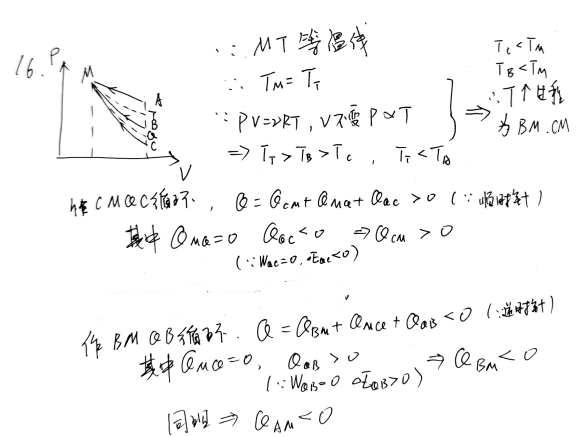 16. P
M
A
T
B
Q
C
V
∵ MT等温线
∴ T_M = T_T
∵ PV=νRT, V不变 P∝T
⇒ T_T > T_B > T_C , T_T < T_A
T_C < T_M
T_B < T_M
⇒ ∴ T↑过程
为 BM. CM
作CMQC循环, Q = Q_CM + Q_MQ + Q_QC > 0 (∵顺时针)
其中 Q_MQ = 0 Q_QC < 0 ⇒ Q_CM > 0
(∵ W_QC = 0, ΔE_QC < 0)
作BMQB循环. Q = Q_BM + Q_MQ + Q_QB < 0 (∵逆时针)
其中 Q_MQ = 0, Q_QB > 0 ⇒ Q_BM < 0
(∵ W_QB = 0 ΔE_QB > 0)
同理 ⇒ Q_AM < 0